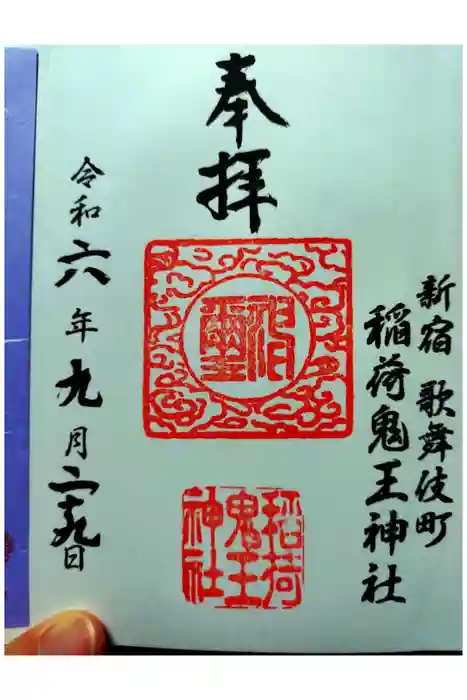 新宿 歌舞伎町
稲荷鬼王神社
奉拝
稲荷
鬼王
神社
令和六年九月二十九日